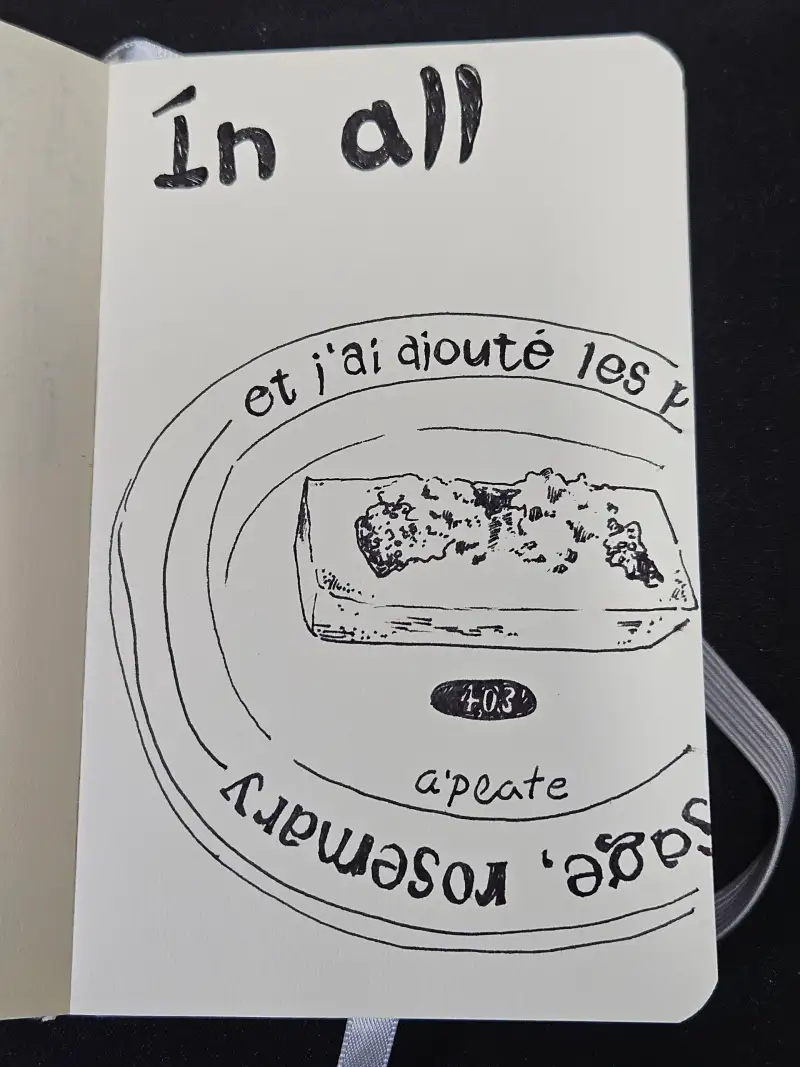 Ín all
et j'ai aiouté les p
403
a'peate
sage, rosemary